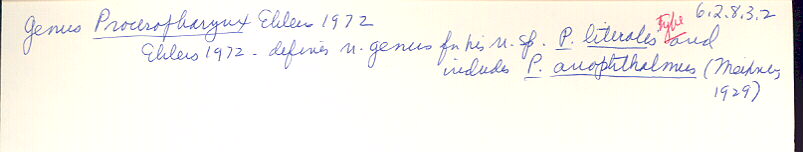 Genus Proceropharynx Ehlers 1972
6.2.8.3.2
Ehlers 1972 - defines n. genus for his n. sp. P. litorales type and
includes P. anophthalmus (Meixner,
1929)